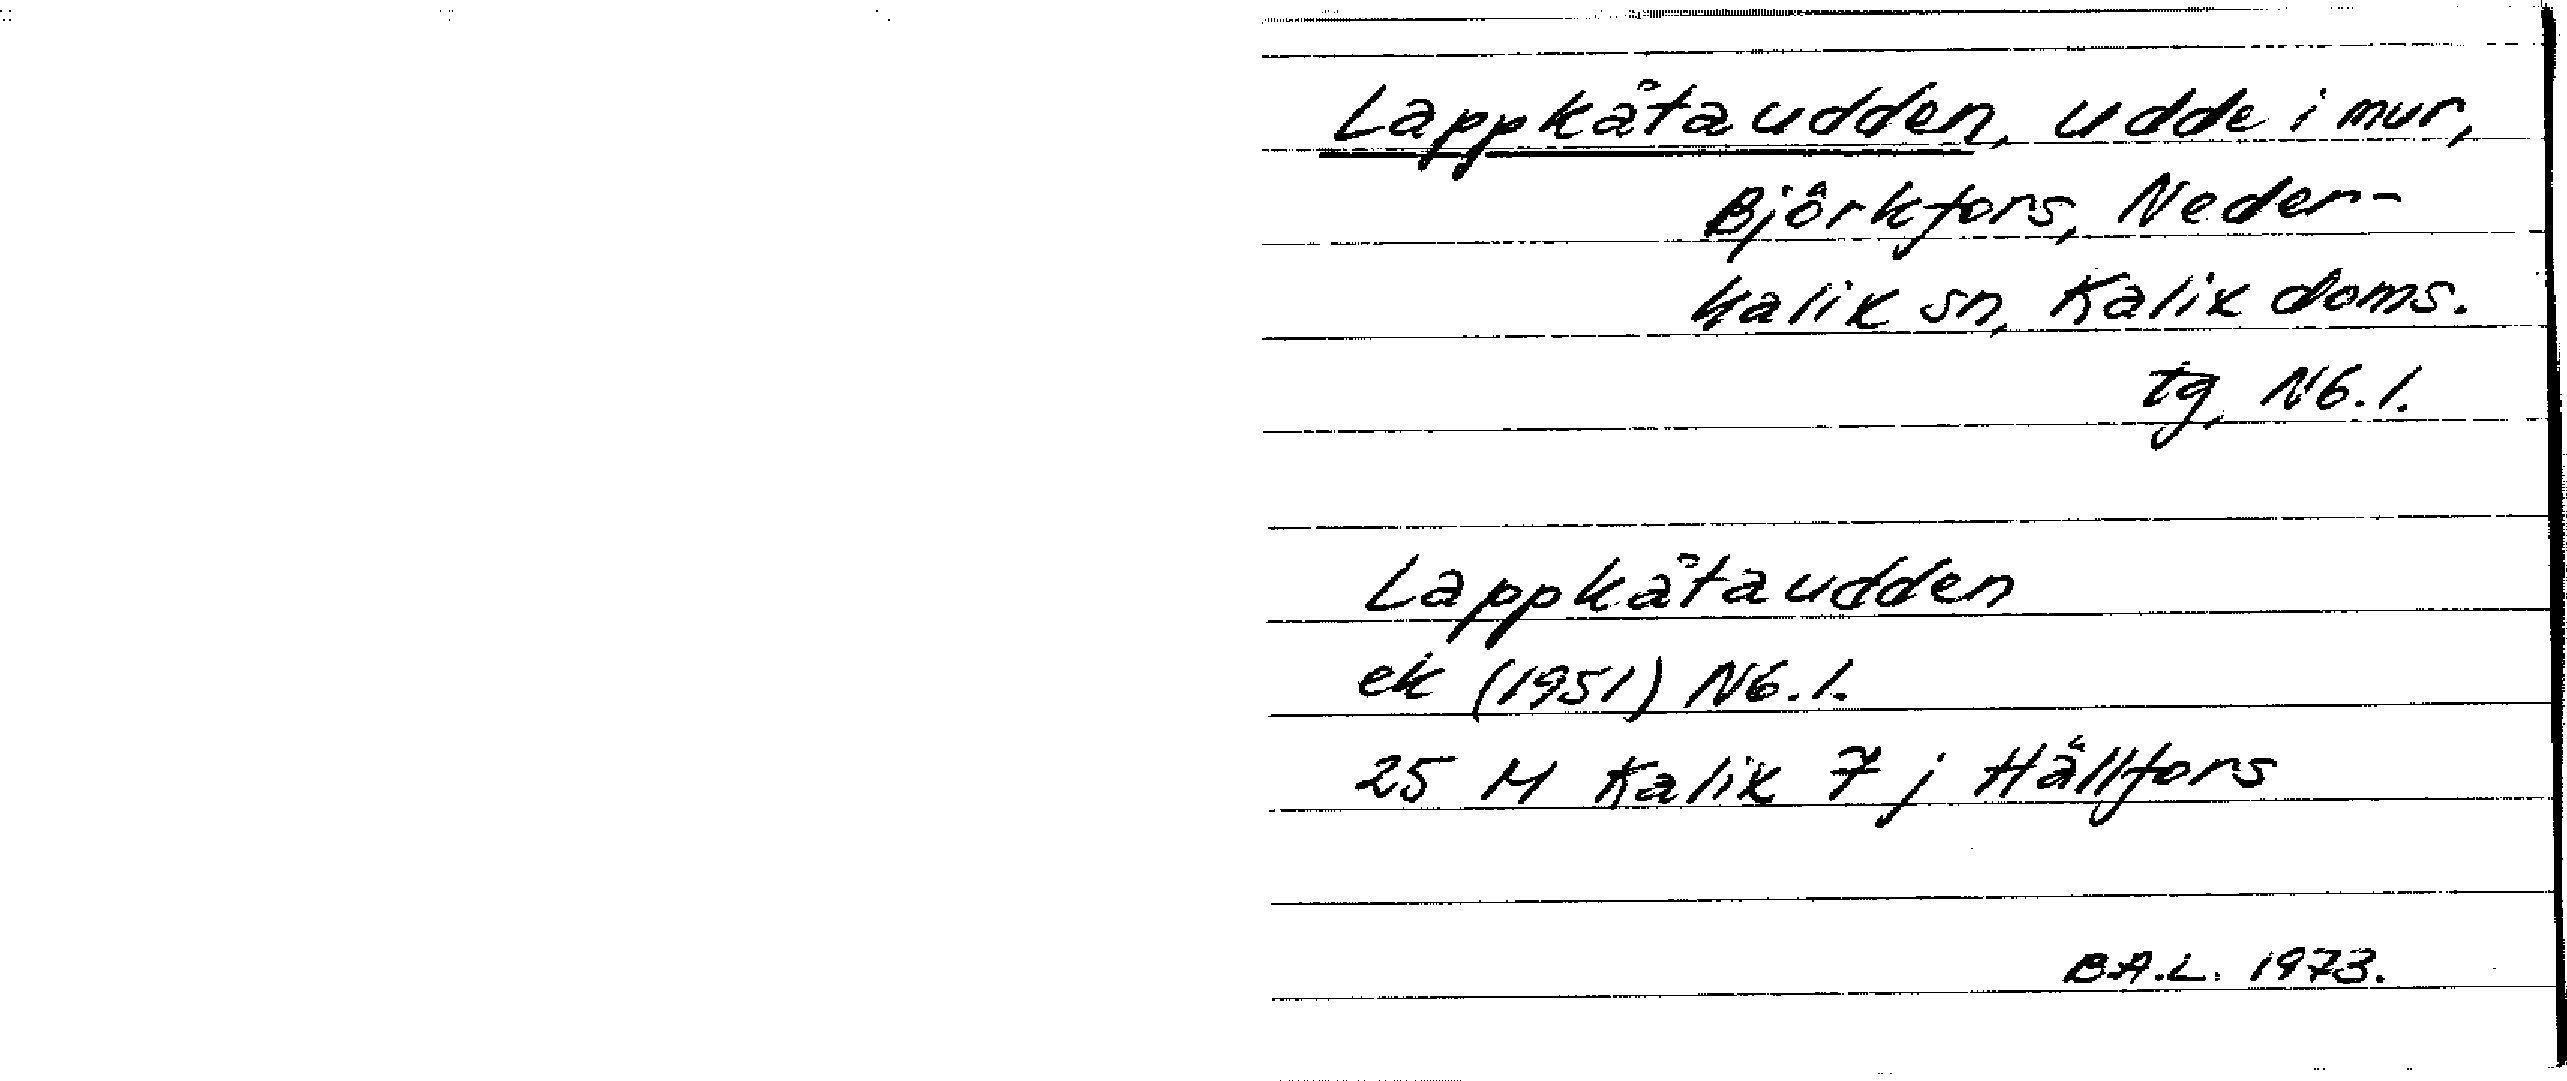 Lappkåtaudden, udde i mur,
Björkfors, Neder-
kalix sn, Kalix doms.
tg, Nb. l.
Lappkåtaudden
ek (1951) Nb. l.
25 M Kalix 7 j Hällfors
B.A.L. 1973.